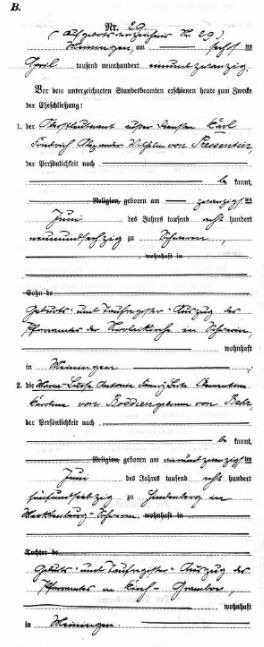 B.
Nr. 29
(Aufgebotsverzeichnis N. 29)
Meiningen, am sechs ten
April tausend neunhundert neunundzwanzig.
Vor dem unterzeichneten Standesbeamten erschienen heute zum Zwecke
der Eheschließung:
1. der Oberstleutnant außer Diensten Karl
Friedrich Alexander Wilhelm von
der Persönlichkeit nach
be kannt,
Religion, geboren am zwanzigsten
Juni des Jahres tausend acht hundert
neunundsechzig zu Schwerin,
wohnhaft in
Sohn de
Geburts- und Taufregister-Auszug des
Pfarramtes der in Schwerin,
wohnhaft
in Meiningen ;
2. die
Karoline von geborene von
der Persönlichkeit nach
be kannt,
Religion, geboren am ten
Juni des Jahres tausend acht hundert
fünfundsiebzig zu in
Mecklenburg-Schwerin wohnhaft in
Tochter de
Geburts- und Taufregister-Auszug des
Pfarramtes in Kirch-Grambow,
wohnhaft
in Meiningen.